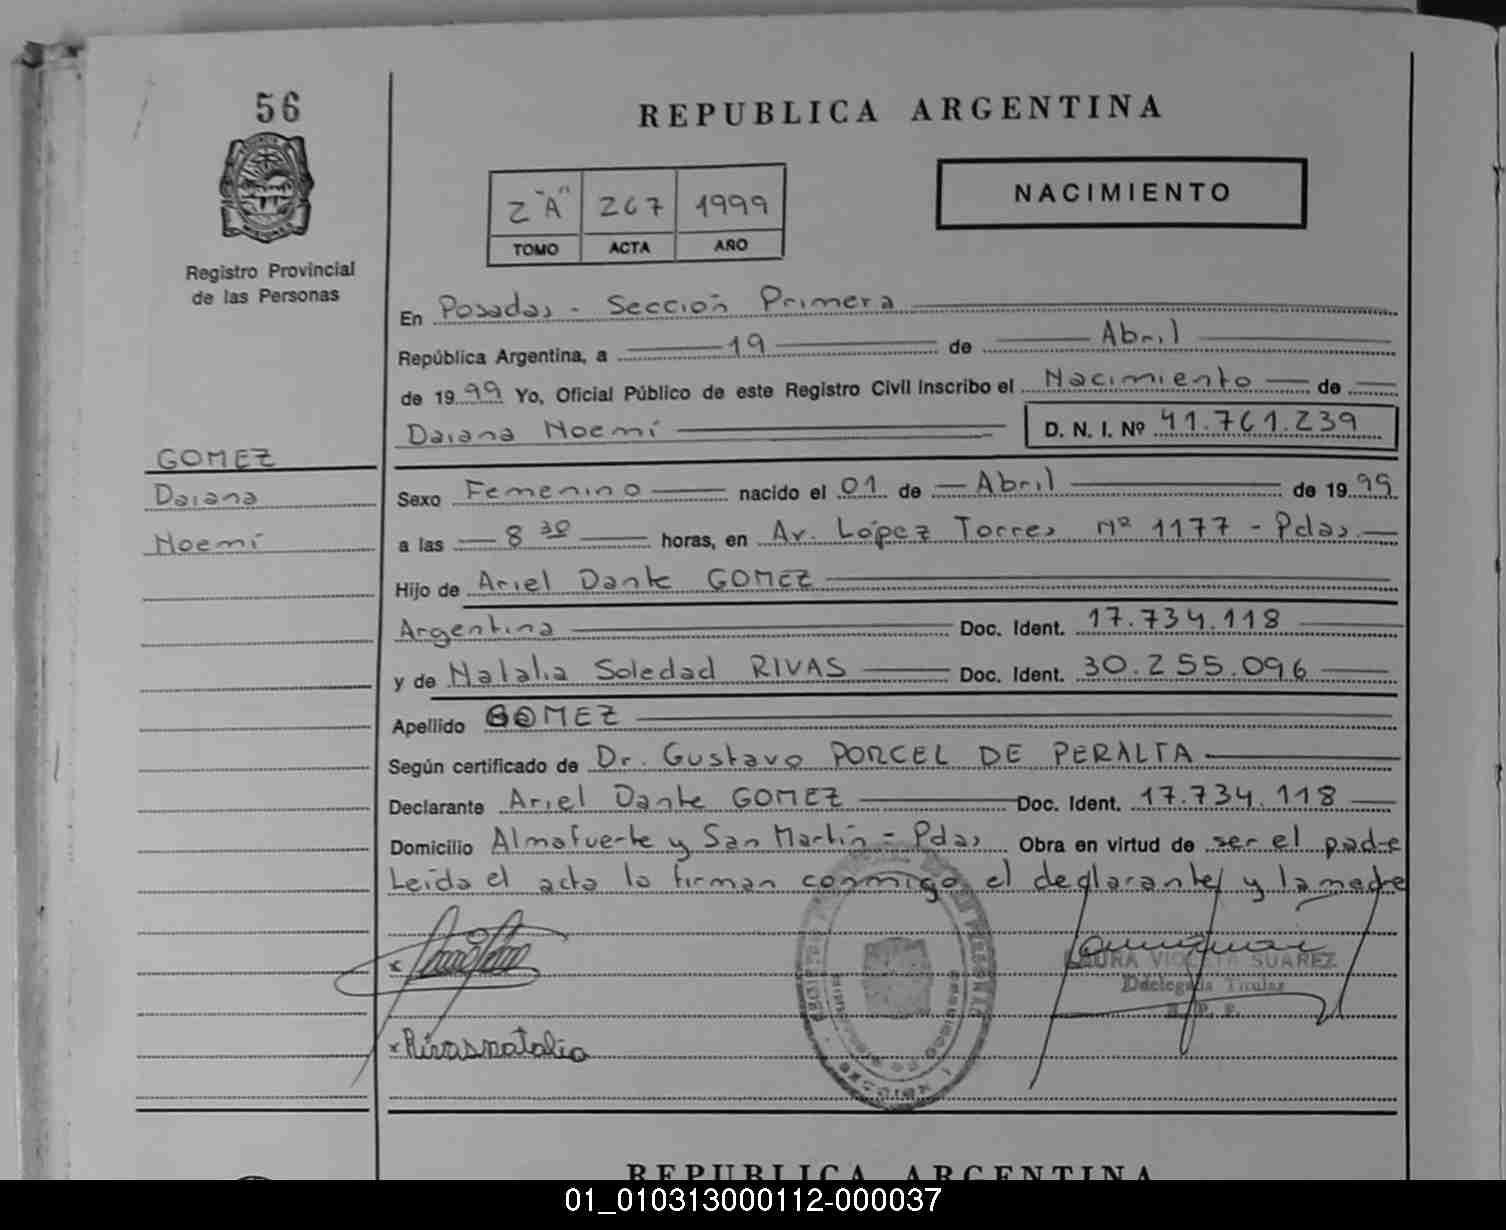 56
REPUBLICA ARGENTINA
2 "A" 267 1999
TOMO ACTA AÑO
NACIMIENTO
Registro Provincial
de las Personas
En Posadas - Sección Primera
República Argentina, a 19 de Abril
de 1999 Yo, Oficial Público de este Registro Civil Inscribo el Nacimiento de
Daiana Noemí D. N. I. Nº 41.761.239
GOMEZ
Daiana
Noemí
Sexo Femenino nacido el 01 de Abril de 1999
a las 8 30 horas, en Av. López Torres Nº 1177 - Pdas.
Hijo de Ariel Dante GOMEZ
Argentina Doc. Ident. 17.734.118
y de Natalia Soledad RIVAS Doc. Ident. 30.255.096
Apellido GOMEZ
Según certificado de Dr. Gustavo PORCEL DE PERALTA
Declarante Ariel Dante GOMEZ Doc. Ident. 17.734.118
Domicilio Almafuerte y San Martín - Pdas Obra en virtud de ser el padre
Leída el acta la firman conmigo el declarante y la madre
LAURA VIOLETA SUAREZ
Ddelegada Titular
R. P. P.
x Rivas natalia
REPUBLICA ARGENTINA
01_010313000112-000037